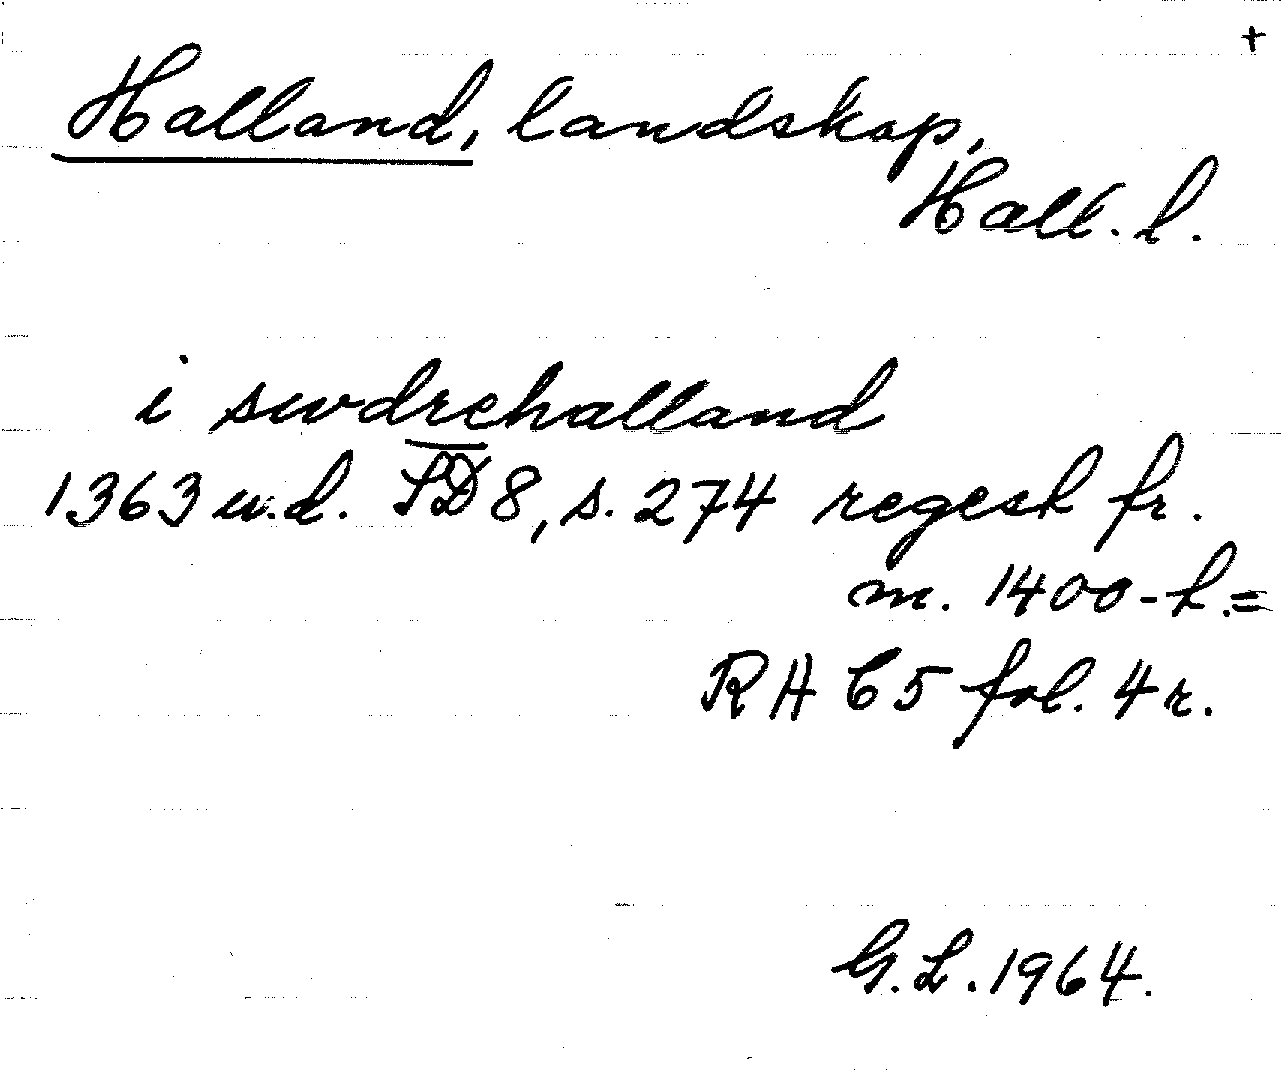 +
Halland, landskap,
Hall. l.
i swdrehalland
1363 u.d. SD 8, s. 274 regest fr.
m. 1400-t. =
RA C5 fol. 4 r.
G.L. 1964.